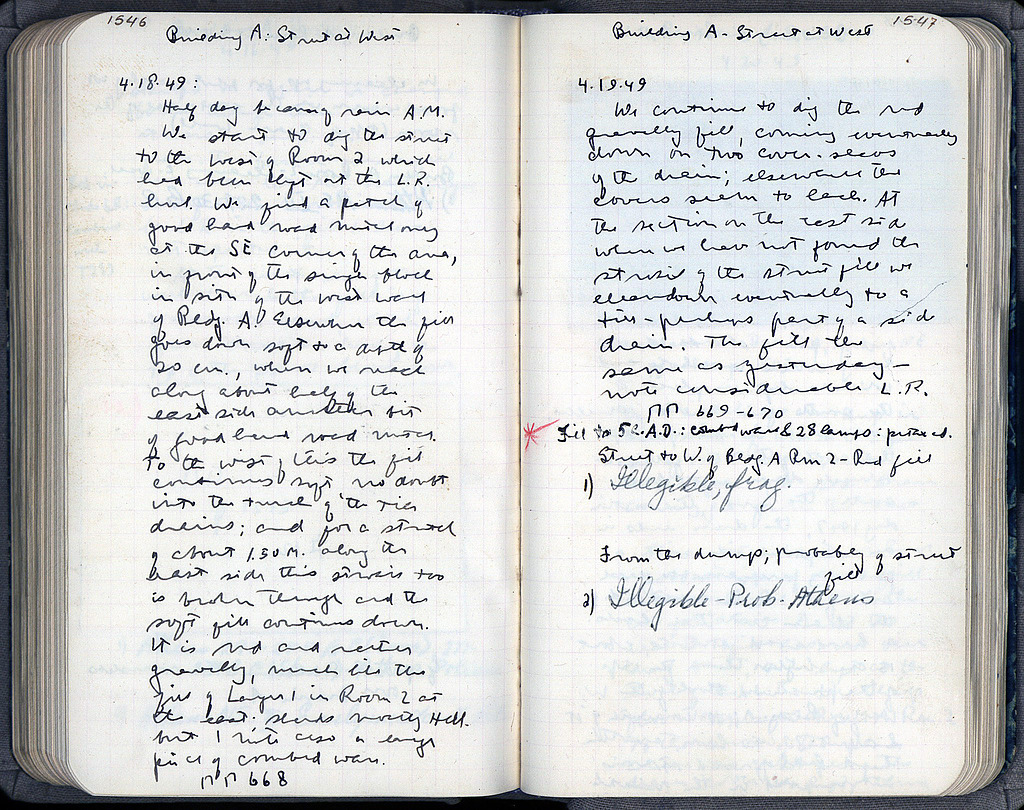 1546
Building A: Street at West
4.18.49:
Half day because of rain A.M.
We start to dig the street
to the west of Room 2 which
had been left at the L.R.
level. We find a patch of
good hard road metal only
at the SE corner of the area,
in front of the single block
in situ of the west wall
of Bldg. A. Elsewhere the fill
goes down soft to a depth of
20 cm., when we reach
along about half of the
east side another bit
of good hard road metal.
To the west of this the fill
continues soft, no doubt
into the trench of the tile
drains; and for a stretch
of about 1.50 M. along the
east side this strosis too
is broken through and the
soft fill continues down.
It is red and rather
gravelly, much like the
fill of Layer 1 in Room 2 at
the east. sherds mostly Hell.
but I note also a large
piece of combed ware.
ΠΠ 668
1547
Building A - Street at West
4.19.49
We continue to dig the red
gravelly fill, coming eventually
down on two cover-slabs
of the drain; elsewhere the
covers seem to lack. At
the section on the east side
where we have not found the
strosis of the street fill we
clean down eventually to a
tile - perhaps part of a side
drain. The fill the
same as yesterday -
note considerable L.R.
ΠΠ 669-670
Fill to 5 c. A.D.: combed ware & 28 lamps:
Street to W. of Bldg. A Rm 2 - Red fill
1) Illegible, frag.
From the dump; probably of street
fill
2) Illegible - Prob. Athens